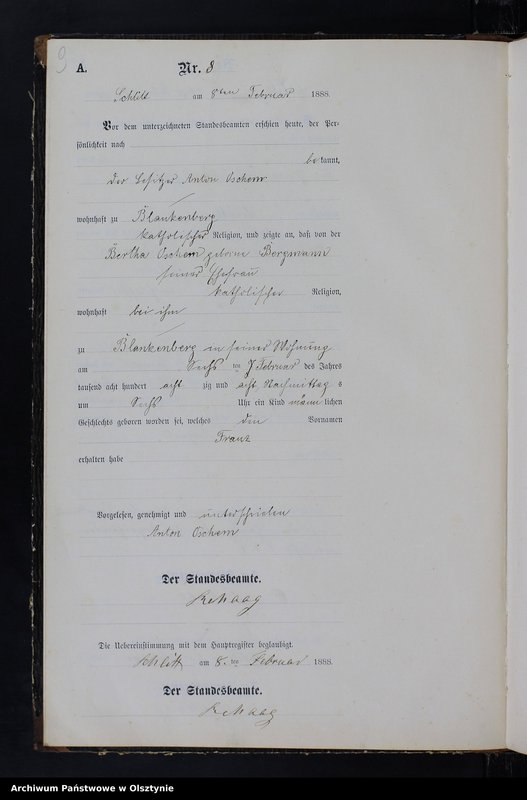 9
A.
Nr. 8
Schlitt am 8ten Februar 1888.
Vor dem unterzeichneten Standesbeamten erschien heute, der Per-
sönlichkeit nach
be kannt,
der Besitzer Anton Oschem
wohnhaft zu Blankenberg
katholischer Religion, und zeigte an, daß von der
Bertha Oschem geborne Bergmann
seiner Ehefrau
katholischer Religion,
wohnhaft bei ihm
zu Blankenberg in seiner Wohnung
am Sechs ten Februar des Jahres
tausend acht hundert acht zig und acht Nachmittag s
um Sechs Uhr ein Kind männ lichen
Geschlechts geboren worden sei, welches den Vornamen
Franz
erhalten habe
Vorgelesen, genehmigt und unterschrieben
Anton Oschem
Der Standesbeamte.
Rehaag
Die Uebereinstimmung mit dem Hauptregister beglaubigt.
Schlitt am 8. ten Februar 1888.
Der Standesbeamte.
Rehaag
Archiwum Państwowe w Olsztynie